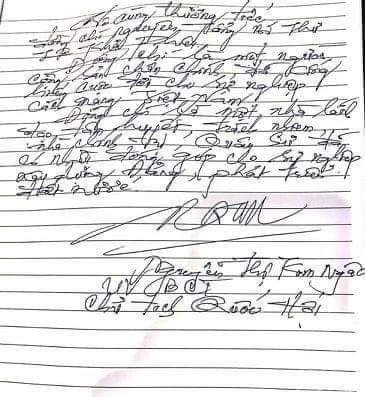 Vô cùng thương tiếc
đồng chí nguyên Tổng Bí thư
Lê Khả Phiêu
Đồng chí là một người
cộng sản chân chính, đã cống
hiến cuộc đời cho sự nghiệp
cách mạng Việt Nam.
Đồng chí là một nhà lãnh
đạo tâm huyết, trách nhiệm
nhà chính trị, Quân sự đã
có nhiều đóng góp cho sự nghiệp
xây dựng Đảng, phát triển
đất nước.
Nguyễn Thị Kim Ngân
UV BCT
Chủ tịch Quốc Hội